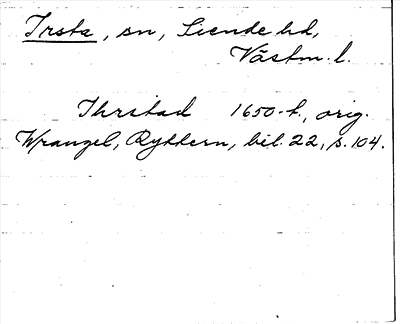 Irsta, sn, Siende hd,
Västm. l.
Ihrstad 1650-t., orig.
Wrangel, Ryttern, bil. 22, s. 104.